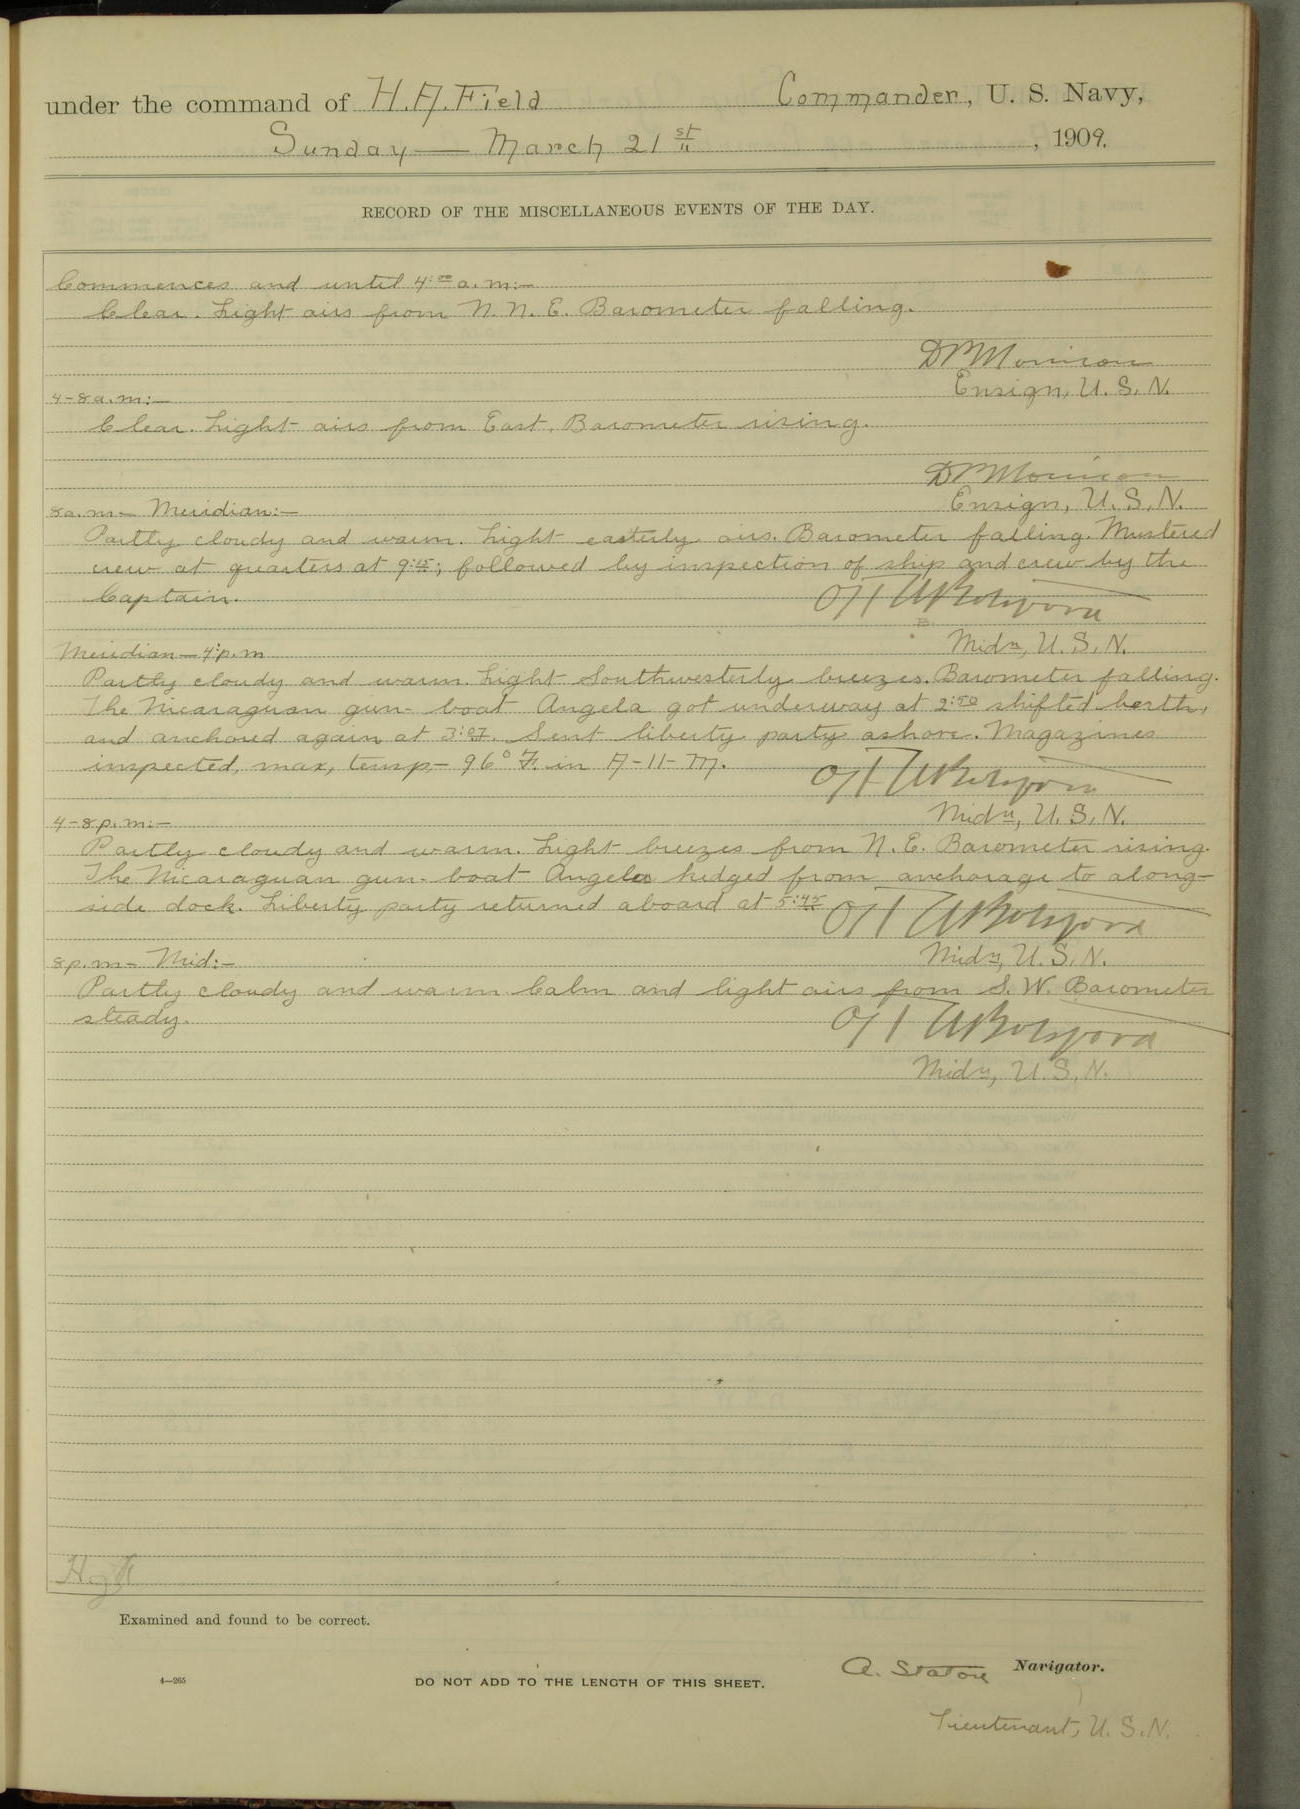 under the command of H. A. Field Commander, U. S. Navy,
Sunday — March 21st, 1909.
RECORD OF THE MISCELLANEOUS EVENTS OF THE DAY.
Commences and until 4:00 a.m:—
Clear. Light airs from N. N. E. Barometer falling.
Ensign, U. S. N.
4-8 a.m:—
Clear. Light airs from East. Barometer rising.
Ensign, U. S. N.
8 a.m— Meridian:—
Partly cloudy and warm. Light easterly airs. Barometer falling. Mustered
crew at quarters at 9:15; followed by inspection of ship and crew by the
Captain.
Midn, U. S. N.
Meridian—4 p.m
Partly cloudy and warm. Light Southwesterly breezes. Barometer falling.
The Nicaraguan gun-boat Angela got underway at 2:50 shifted berth,
and anchored again at 3:07. Sent liberty party ashore. Magazines
inspected, max, temp,- 96° F. in A-11-M.
Midn, U. S. N.
4-8 p.m:—
Partly cloudy and warm. Light breezes from N. E. Barometer rising.
The Nicaraguan gun-boat Angela kedged from anchorage to along-
side dock. Liberty party returned aboard at 5:45
Midn, U. S. N.
8 p.m— Mid:—
Partly cloudy and warm Calm and light airs from S. W. Barometer
steady.
Midn, U. S. N.
Examined and found to be correct.
A. Staton Navigator.
4—265
DO NOT ADD TO THE LENGTH OF THIS SHEET.
Lieutenant, U. S. N.